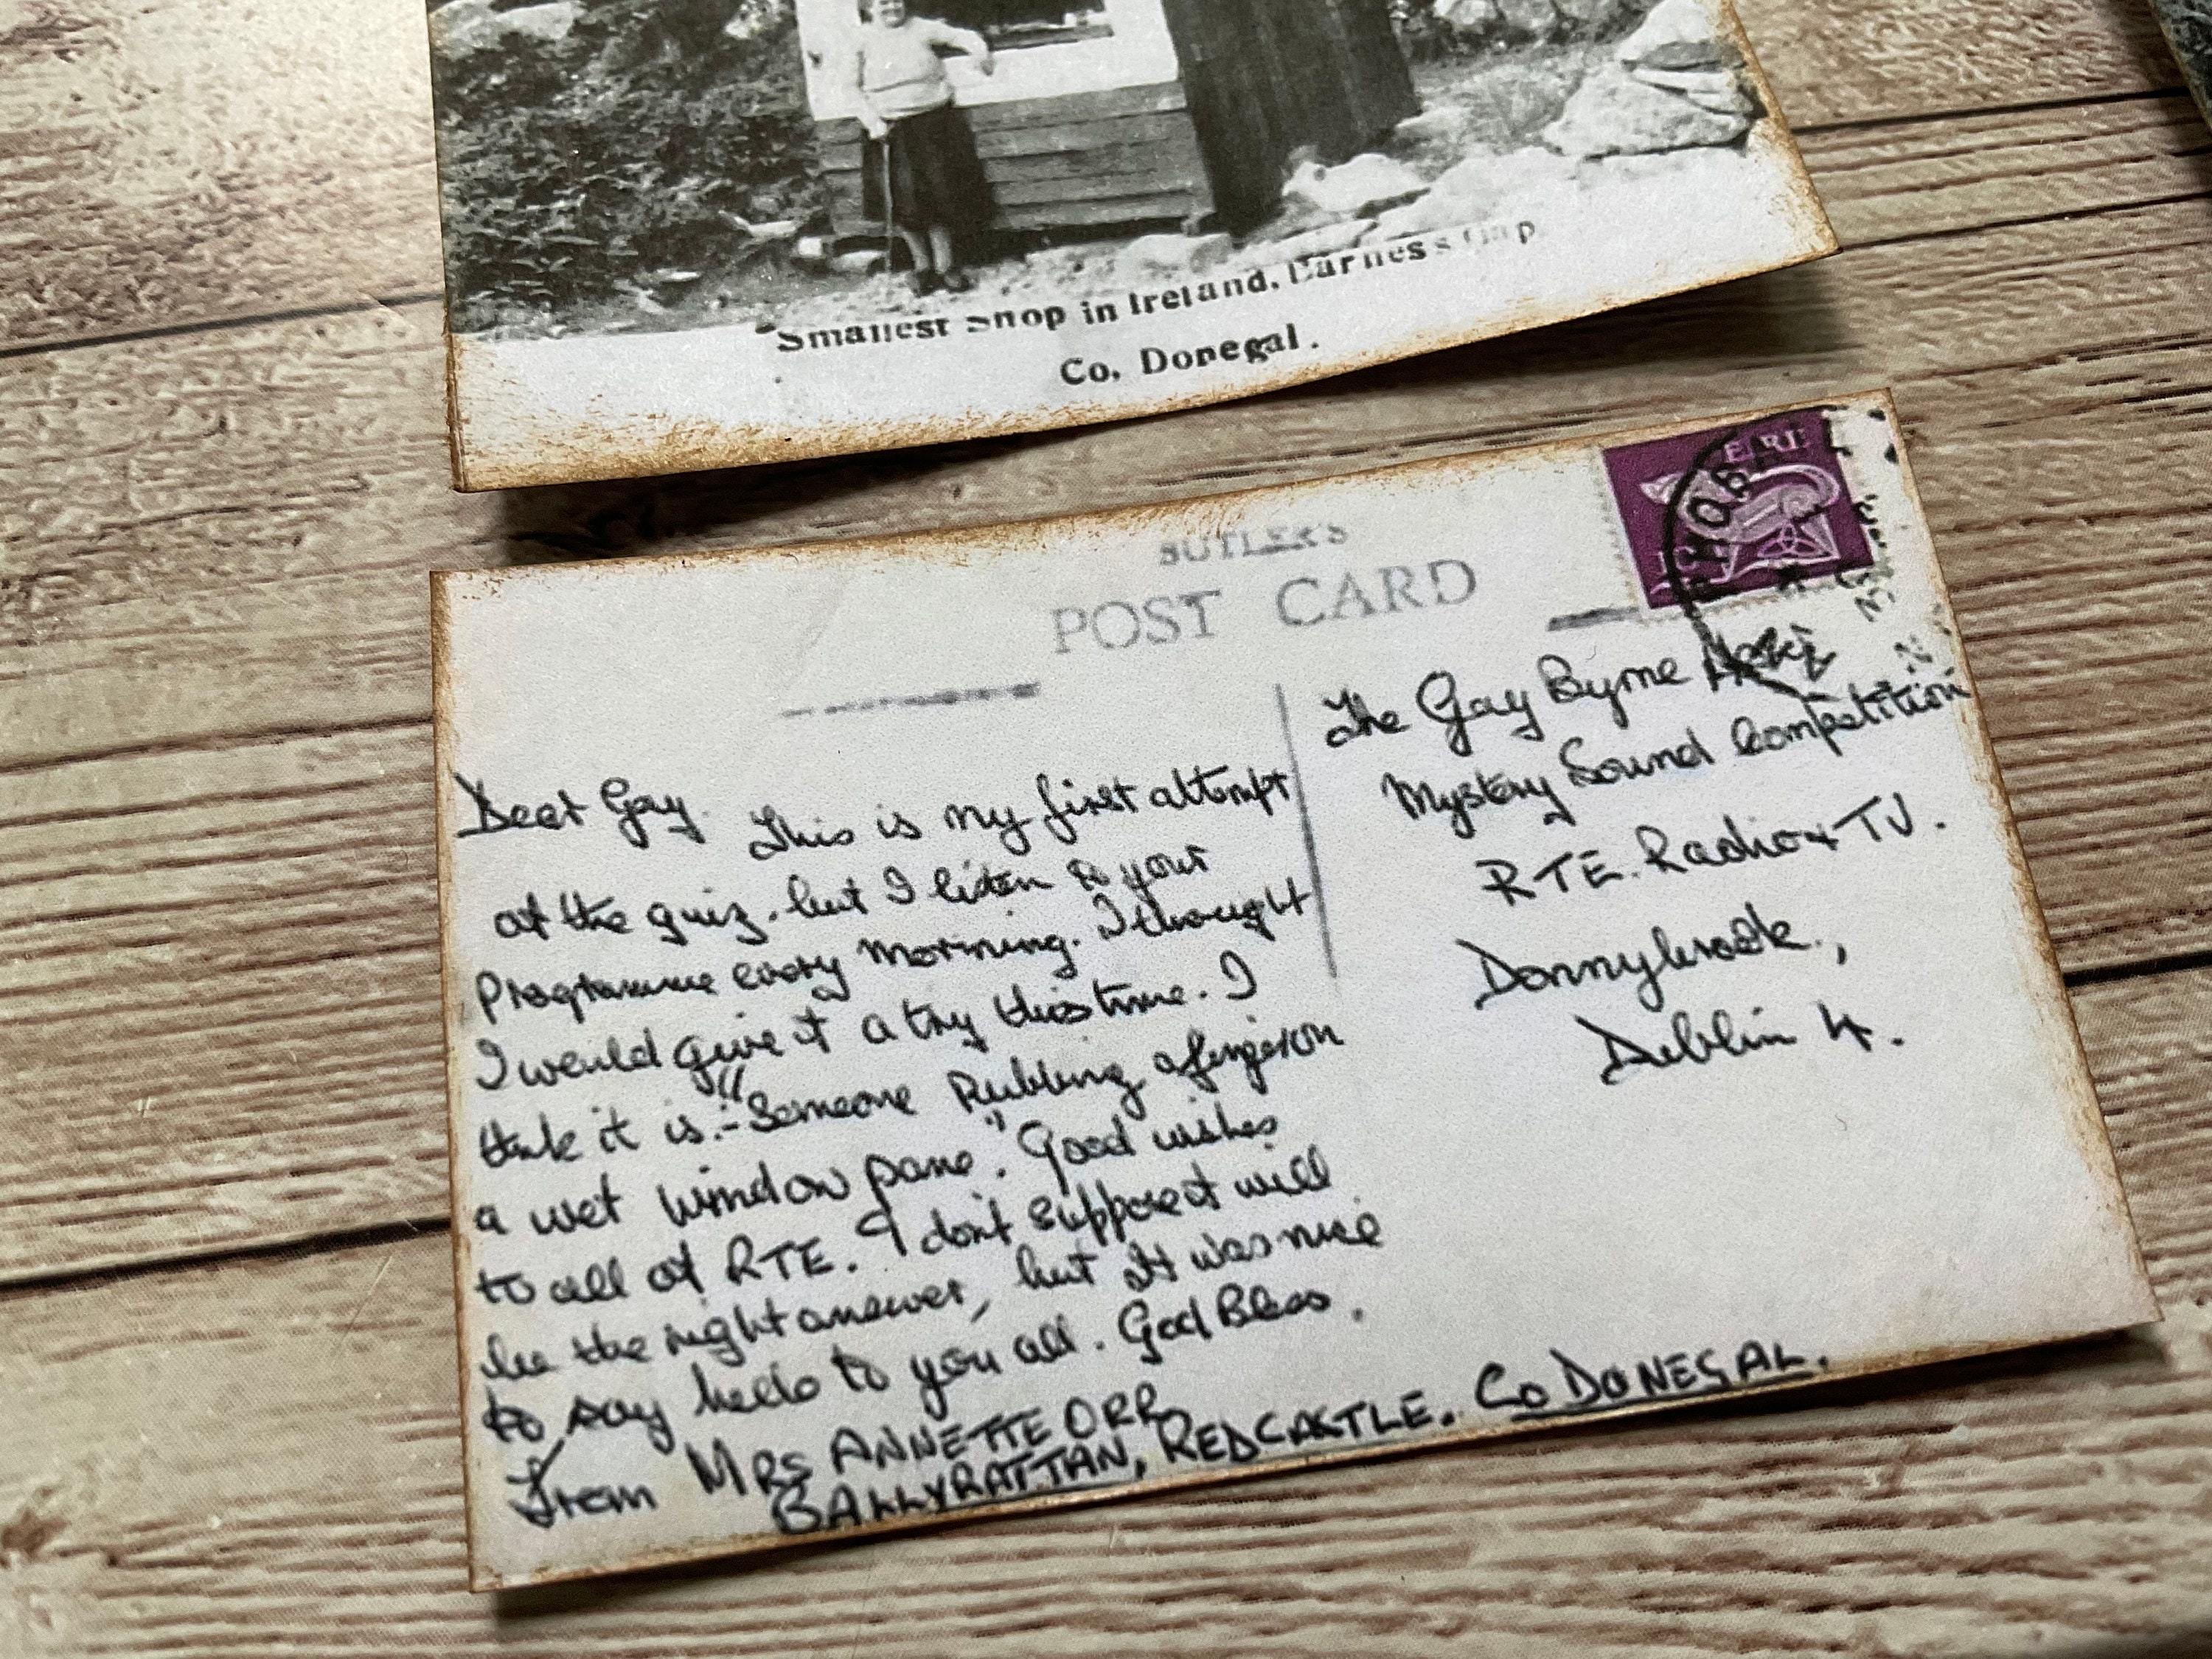 "Smallest Shop in Ireland, Barness Gap,
Co. Donegal.
BUTLER'S
POST CARD
EIRE
Dear Gay. This is my first attempt
at the quiz, but I listen to your
programme every morning. I thought
I would give it a try this time. I
think it is:- "Someone Rubbing a finger on
a wet window pane." Good wishes
to all at RTE. I don't suppose it will
be the right answer, but it was nice
to say hello to you all. God Bless.
From MRS ANNETTE ORR
BALLYRATTAN, REDCASTLE. Co DONEGAL.
The Gay Byrne
Mystery Sound Competition
RTE. Radio & TV.
Donnybrook,
Dublin 4.